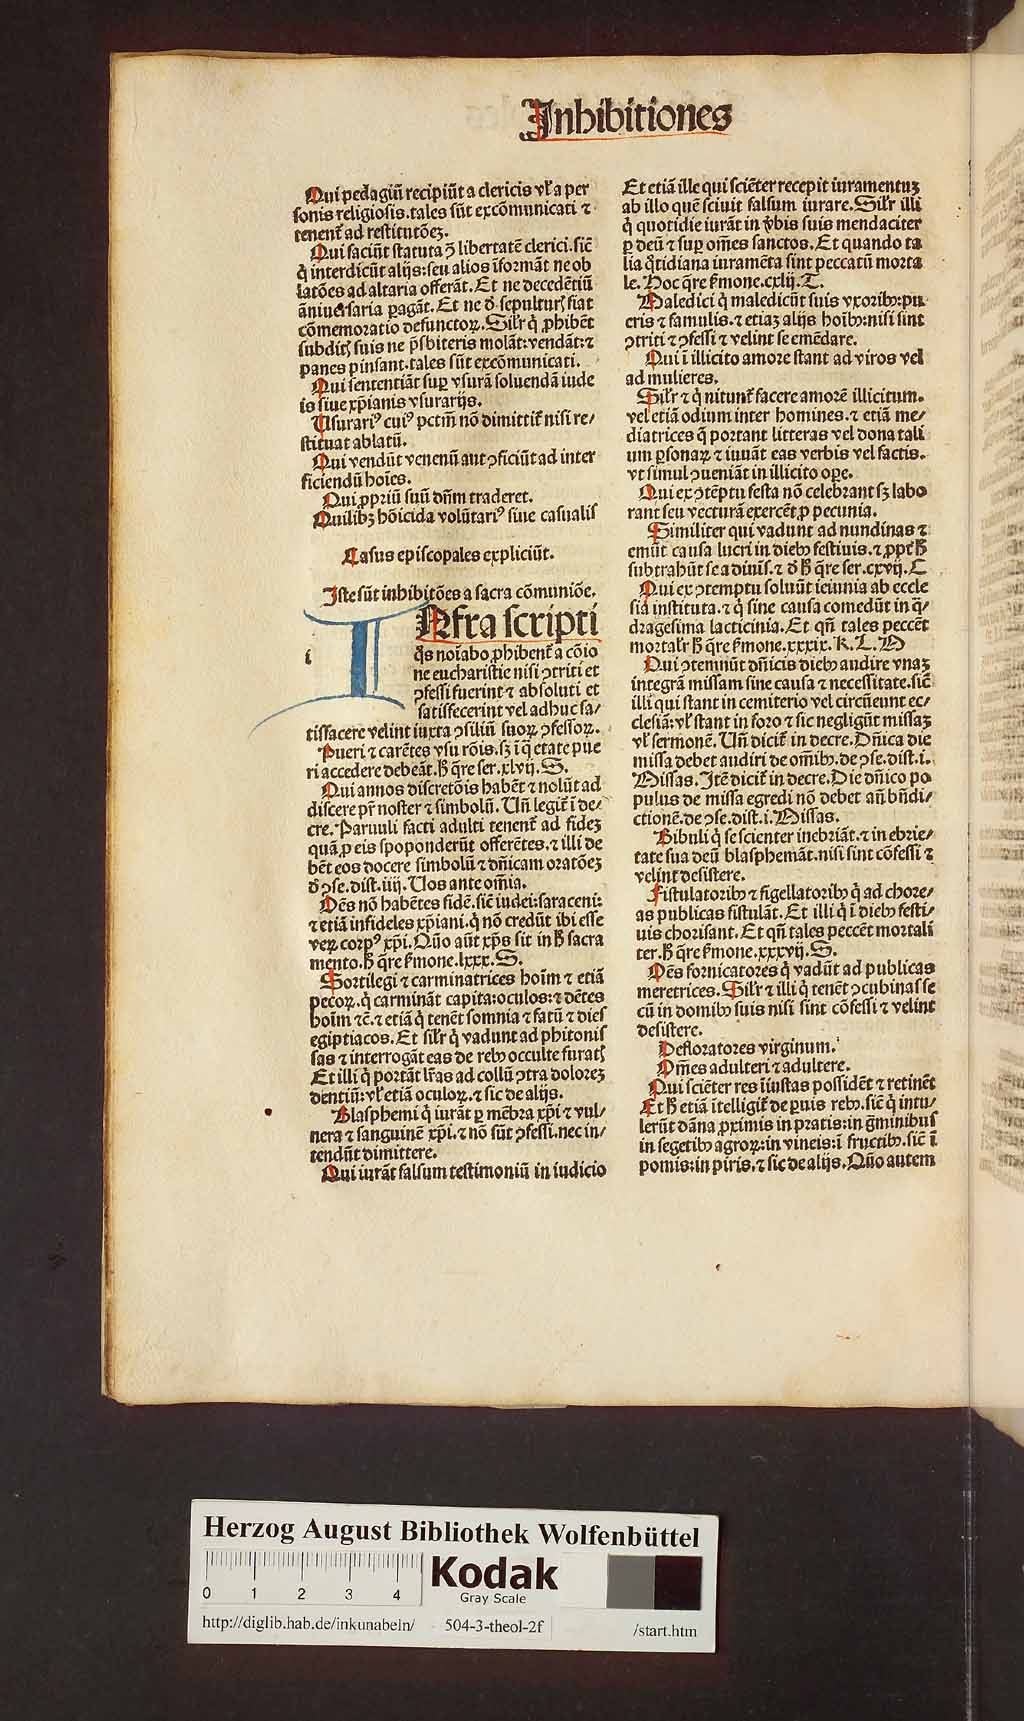 Inhibitiones
Qui pedagiū recipiūt a clericis vl' a per
sonis religiosis. tales sūt excōmunicati ⁊
tenent̄ ad restitutōeꝫ.
Qui faciūt statuta ꝯ̄ libertatē clerici. sic̄
q̇ interdicūt alijs: seu alios īformāt ne ob
latōes ad altaria offerāt. Et ne decedētiū
āniuersaria pagāt. Et ne d̄ sepulturꝭ fiat
cōmemoratio defunctoꝝ. Silr̄ q̇ ꝓhibēt
subditꝭ suis ne p̄sbiteris molāt: vendāt: ⁊
panes pinsant. tales sūt excōmunicati.
Qui sententiāt suꝑ vsurā soluendā iude
is siue xp̄ianis vsurarijs.
Usurariꝰ cuiꝰ pctm̄ nō dimittit̄ nisi re/
stituat ablatū.
Qui vendūt venenū aut ꝯficiūt ad inter
ficiendū hoīes.
Qui ꝓpriū suū dn̄m traderet.
Quilibꝫ hōicida volūtariꝰ siue casualis
Casus episcopales expliciūt.
Iste sūt inhibitōes a sacra cōmuniōe.
INfra scripti
i
q̄s noīabo ꝓhibent̄ a cōio
ne eucharistie nisi ꝯtriti et
ꝯfessi fuerint ⁊ absoluti et
satisfecerint vel adhuc sa/
tisfacere velint iuxta ꝯsiliū suoꝝ ꝯfessoꝝ.
Pueri ⁊ carētes vsu rōis. sꝫ ī q̄ etate pue
ri accedere debeāt. h̄ q̄re ser. xlvij. S.
Qui annos discretōis habēt ⁊ nolūt ad
discere pr̄ noster ⁊ simbolū. Un̄ legit̄ ī de/
cre. Paruuli facti adulti tenent̄ ad fideꝫ
quā ꝓ eis spoponderūt offerētes. ⁊ illi de
bēt eos docere simbolū ⁊ dn̄icam oratōeꝫ
d̄ ꝯse. dist. iiij. Uos ante om̄ia.
Om̄s nō habētes fidē. sic̄ iudei: saraceni:
⁊ etiā infideles xp̄iani. q̇ nō credūt ibi esse
veꝝ corpꝰ xp̄i. Quō aūt xp̄s sit in h̄ sacra
mento. h̄ q̄re s̄mone. lxxx. S.
Sortilegi ⁊ carminatrices hoīm ⁊ etiā
pecoꝝ. q̇ carmināt capita: oculos: ⁊ dētes
hoīm ⁊c̄. ⁊ etiā q̇ tenēt somnia ⁊ fatū ⁊ dies
egiptiacos. Et silr̄ q̇ vadunt ad phitonis
sas ⁊ interrogāt eas de rebꝰ occulte furatꝭ
Et illi q̇ portāt lr̄as ad collū ꝯtra doloreꝫ
dentiū: vl' etiā oculoꝝ. ⁊ sic de alijs.
Blasphemi q̇ iurāt ꝑ mēbra xp̄i ⁊ vul/
nera ⁊ sanguinē xp̄i. ⁊ nō sūt ꝯfessi. nec in/
tendūt dimittere.
Qui iurāt falsum testimoniū in iudicio
Et etiā ille qui sciēter recepit iuramentuꝫ
ab illo quē sciuit falsum iurare. Silr̄ illi
q̇ quotidie iurāt in v̄bis suis mendaciter
ꝑ deū ⁊ suꝑ om̄es sanctos. Et quando ta
lia q̄tidiana iuramēta sint peccatū morta
le. Hoc q̄re s̄mone. cxlij. T.
Maledici q̇ maledicūt suis vxoribꝰ: pu
eris ⁊ famulis. ⁊ etiaꝫ alijs hoībꝰ: nisi sint
ꝯtriti ⁊ ꝯfessi ⁊ velint se emēdare.
Qui ī illicito amore stant ad viros vel
ad mulieres.
Silr̄ ⁊ q̇ nitunt̄ facere amorē illicitum.
vel etiā odium inter homines. ⁊ etiā me/
diatrices q̄ portant litteras vel dona tali
um ꝑsonaꝝ ⁊ iuuāt eas verbis vel factis.
vt simul ꝯueniāt in illicito oꝑe.
Qui ex ꝯtēptu festa nō celebrant sꝫ labo
rant seu vecturā exercēt ꝓ pecunia.
Similiter qui vadunt ad nundinas ⁊
emūt causa lucri in diebꝰ festiuis. ⁊ ꝓpt̄ h̄
subtrahūt se a diuis̄. ⁊ d̄ h̄ q̄re ser. cxvij. C
Qui ex ꝯtemptu soluūt ieiunia ab eccle
sia instituta. ⁊ q̇ sine causa comedūt in q̄/
dragesima lacticinia. Et qn̄ tales peccēt
mortalr̄ h̄ q̄re s̄mone. xxxix. K. L. M
Qui ꝯtemnūt dn̄icis diebꝰ audire vnaꝫ
integrā missam sine causa ⁊ necessitate. sic̄
illi qui stant in cemiterio vel circūeunt ec/
clesiā: vl' stant in foro ⁊ sic negligūt missaꝫ
vl' sermonē. Un̄ dicit̄ in decre. Dn̄ica die
missa debet audiri de om̄ibꝰ. de ꝯse. dist. i.
Missas. Itē dicit̄ in decre. Die dn̄ico po
pulus de missa egredi nō debet an̄ bn̄di/
ctionē. de ꝯse. dist. i. Missas.
Bibuli q̇ se scienter inebriāt. ⁊ in ebrie/
tate sua deū blasphemāt. nisi sint cōfessi ⁊
velint desistere.
Fistulatoribꝰ ⁊ figellatoribꝰ q̇ ad chore/
as publicas fistulāt. Et illi q̇ ī diebꝰ festi/
uis chorisant. Et qn̄ tales peccēt mortali
ter. h̄ q̄re s̄mone. xxxvij. S.
Om̄s fornicatores q̇ vadūt ad publicas
meretrices. Silr̄ ⁊ illi q̇ tenēt ꝯcubinas se
cū in domibꝰ suis nisi sint cōfessi ⁊ velint
desistere.
Defloratores virginum.
Om̄es adulteri ⁊ adultere.
Qui sciēter res īiustas possidēt ⁊ retinēt
Et h̄ etiā ītelligit̄ de ꝑuis rebꝰ. sic̄ q̇ intu/
lerūt dāna ꝓximis in pratis: in ḡminibus
in segetibꝰ agroꝝ: in vineis: ī fructibꝰ. sic̄ ī
pomis: in piris. ⁊ sic de alijs. Quō autem
Herzog August Bibliothek Wolfenbüttel
0 1 2 3 4
Kodak
Gray Scale
http://diglib.hab.de/inkunabeln/ 504-3-theol-2f /start.htm